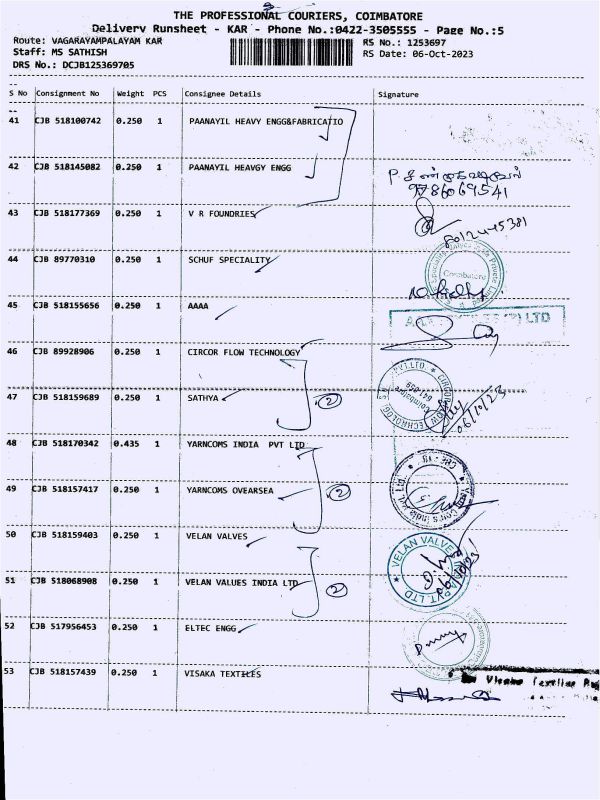 THE PROFESSIONAL COURIERS, COIMBATORE
Delivery Runsheet - KAR - Phone No.:0422-3505555 - Page No.:5
Route: VAGARAYAMPALAYAM KAR
RS No.: 1253697
Staff: MS SATHISH
RS Date: 06-Oct-2023
DRS No.: DCJB125369705
S No Consignment No Weight PCS Consignee Details Signature
41 CJB 518100742 0.250 1 PAANAYIL HEAVY ENGG&FABRICATIO
42 CJB 518145082 0.250 1 PAANAYIL HEAVGY ENGG
9786069541
43 CJB 518177369 0.250 1 V R FOUNDRIES
8012445381
44 CJB 89770310 0.250 1 SCHUF SPECIALITY
Coimbatore
45 CJB 518155656 0.250 1 AAAA
(P) LTD
46 CJB 89928906 0.250 1 CIRCOR FLOW TECHNOLOGY
47 CJB 518159689 0.250 1 SATHYA 2
CIRCOR FLOW TECHNOLOGIES PVT.LTD.
Coimbatore
641 659
06/10/23
48 CJB 518170342 0.435 1 YARNCOMS INDIA PVT LTD
49 CJB 518157417 0.250 1 YARNCOMS OVEARSEA 2
India Pvt. Ltd.
50 CJB 518159403 0.250 1 VELAN VALVES
51 CJB 518068908 0.250 1 VELAN VALUES INDIA LTD 2
VELAN VALVES PVT LTD
52 CJB 517956453 0.250 1 ELTEC ENGG
53 CJB 518157439 0.250 1 VISAKA TEXTILES